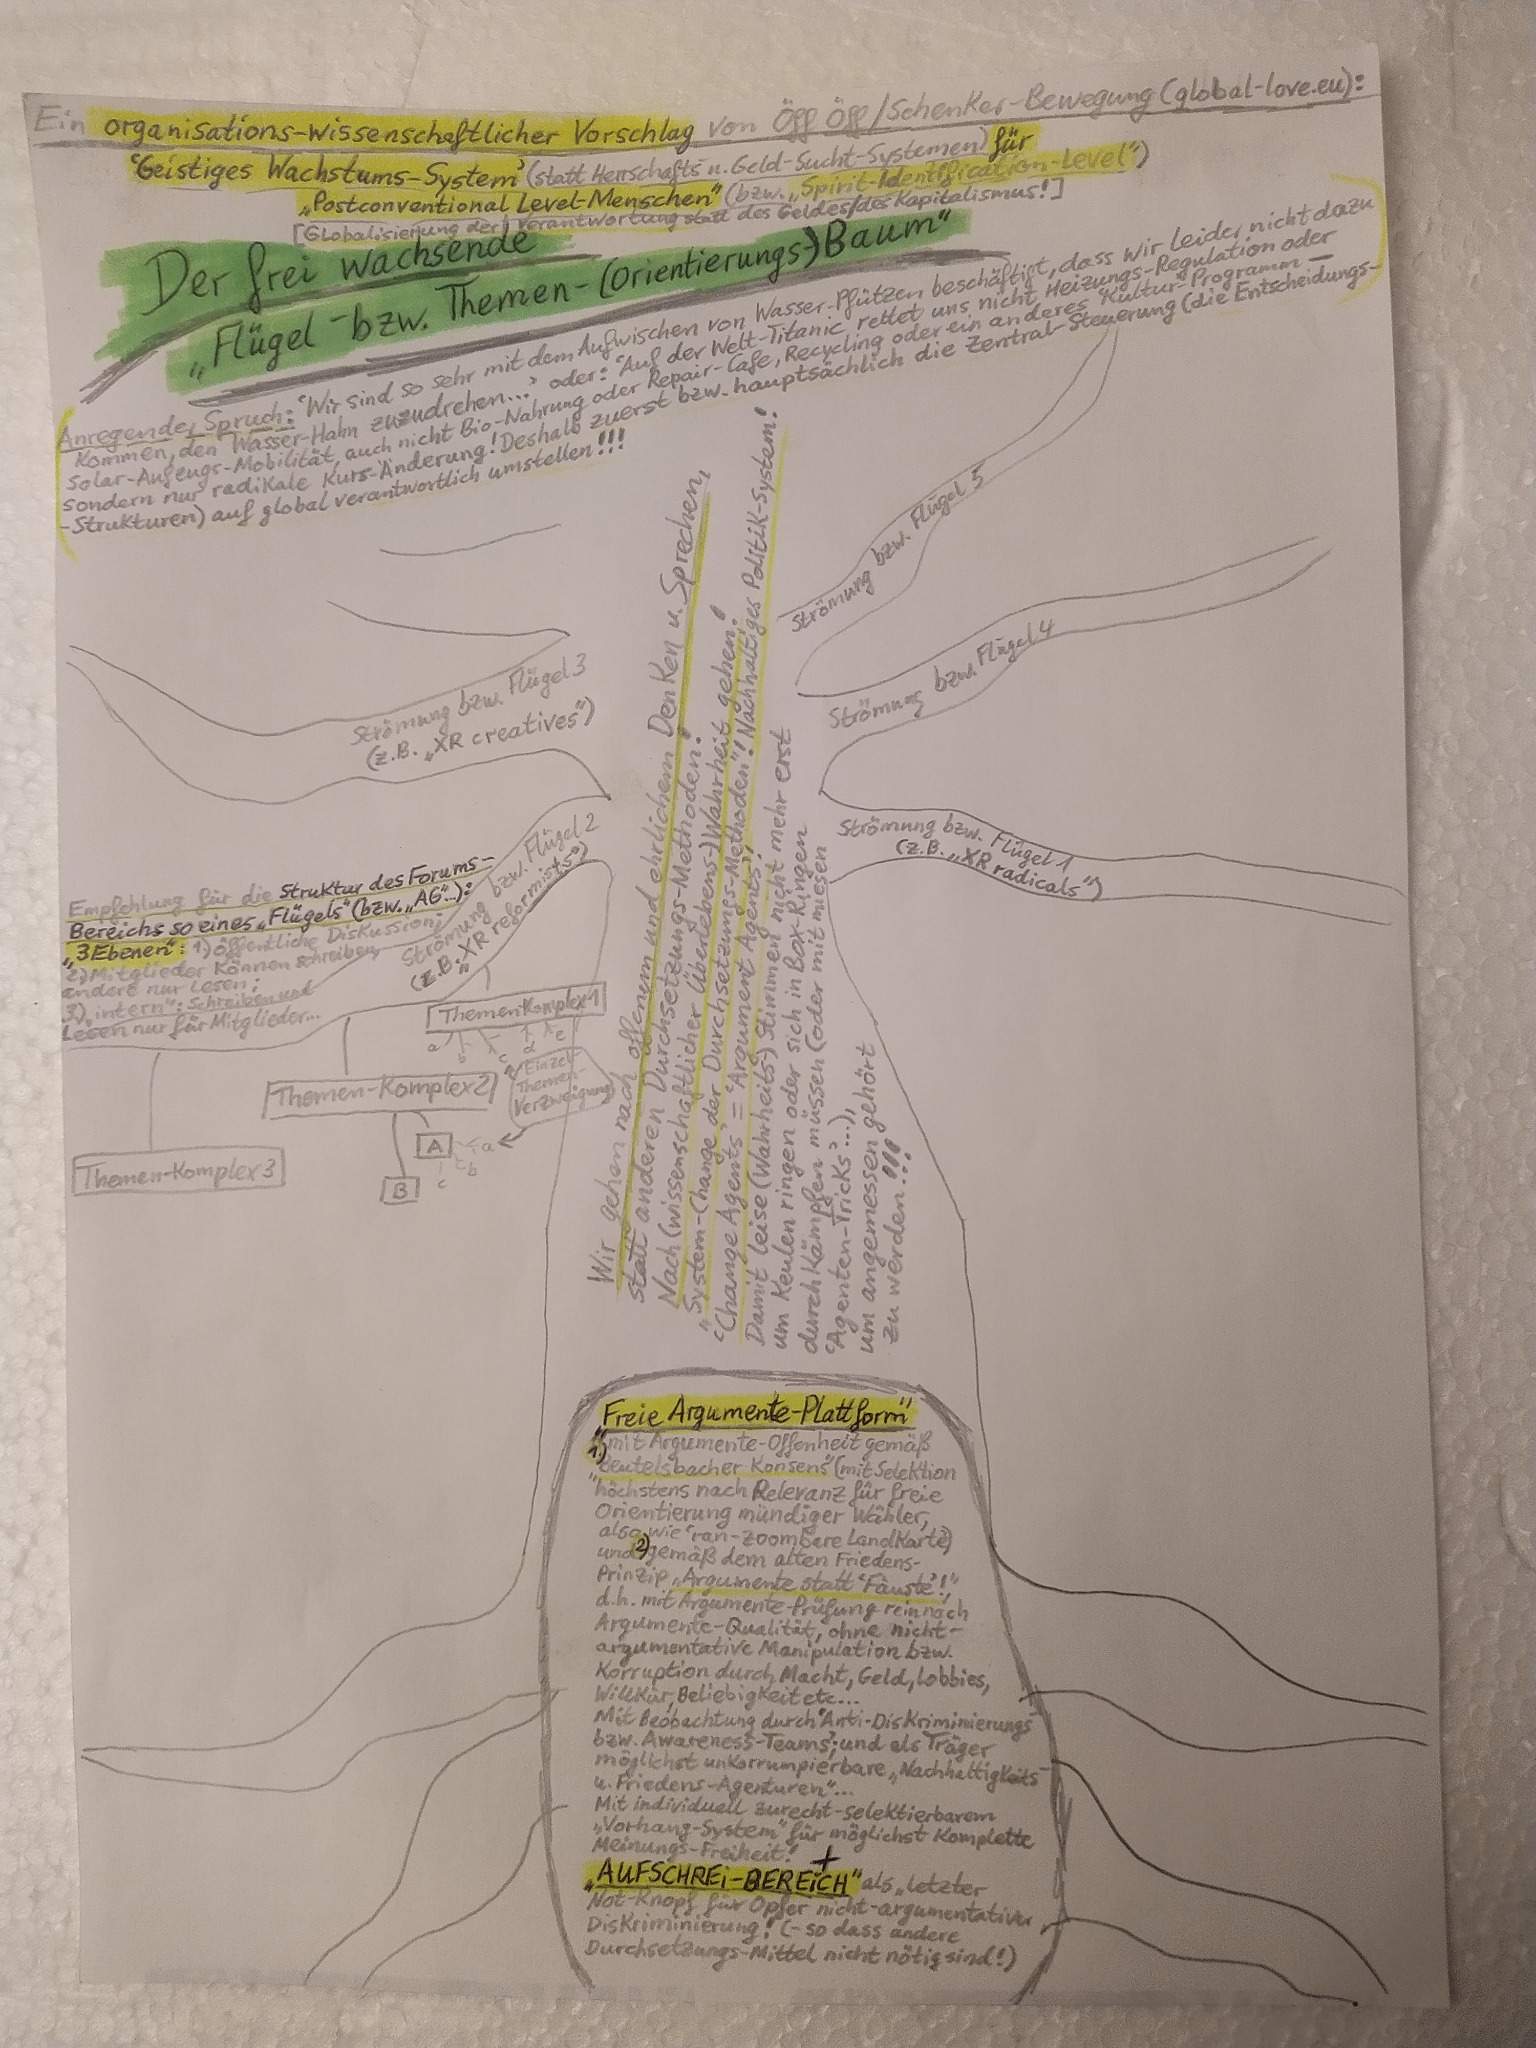 Ein organisations-wissenschaftlicher Vorschlag von Öff Öff/Schenker-Bewegung (global-love.eu):
'Geistiges Wachstums-System' (statt Herrschafts- u. Geld-Sucht-Systemen) für
"Postconventional Level-Menschen" (bzw. "Spirit-Identification-Level")
[Globalisierung der Verantwortung statt des Geldes/des Kapitalismus!]
Der frei wachsende
"Flügel- bzw. Themen-(Orientierungs-)Baum"
Anregender Spruch: 'Wir sind so sehr mit dem Aufwischen von Wasser-Pfützen beschäftigt, dass wir leider nicht dazu
kommen, den Wasser-Hahn zuzudrehen...' oder: 'Auf der Welt-Titanic rettet uns nicht Heizungs-Regulation oder
Solar-Aufzugs-Mobilität, auch nicht Bio-Nahrung oder Repair-Cafe, Recycling oder ein anderes "Kultur-Programm" –
sondern nur radikale Kurs-Änderung! Deshalb zuerst bzw. hauptsächlich die Zentral-Steuerung (die Entscheidungs-
-Strukturen) auf global verantwortlich umstellen!!!
Strömung bzw. Flügel 5
Strömung bzw. Flügel 4
Strömung bzw. Flügel 3
(z.B. "XR creatives")
Strömung bzw. Flügel 2
(z.B. "XR reformists")
Strömung bzw. Flügel 1
(z.B. "XR radicals")
Empfehlung für die Struktur des Forums-
Bereichs so eines "Flügels" (bzw. "AG"...):
"3 Ebenen": 1.) öffentliche Diskussion;
2.) Mitglieder können schreiben,
andere nur lesen;
3.) "intern": Schreiben und
Lesen nur für Mitglieder...
Themenkomplex 1
a b c d e
Einzel-
Themen-
Verzweigung
Themen-Komplex 2
A a
b
c
B
Themen-Komplex 3
Wir gehen nach offenem und ehrlichem Denken u. Sprechen,
statt anderen Durchsetzungs-Methoden!
Nach (wissenschaftlicher Überlebens-)Wahrheit gehen!
"System-Change der Durchsetzungs-Methoden"! Nachhaltiges Politik-System!
'Change Agents' = 'Argument Agents'!
Damit leise (Wahrheits-)Stimmen nicht mehr erst
um Keulen ringen oder sich in Box-Ringen
durchkämpfen müssen (oder mit miesen
'Agenten-Tricks'...),
um angemessen gehört
zu werden!!!
"Freie Argumente-Plattform"
1.) mit Argumente-Offenheit gemäß
"Beutelsbacher Konsens" (mit Selektion
höchstens nach Relevanz für freie
Orientierung mündiger Wähler,
also wie 'ran-zoombare Landkarte')
und 2.) gemäß dem alten Friedens-
Prinzip "Argumente statt 'Fäuste'!",
d.h. mit Argumente-Prüfung rein nach
Argumente-Qualität, ohne nicht-
argumentative Manipulation bzw.
Korruption durch Macht, Geld, Lobbies,
Willkür, Beliebigkeit etc...
Mit Beobachtung durch 'Anti-Diskriminierungs-
bzw. Awareness-Teams'; und als Träger
möglichst unkorrumpierbare "Nachhaltigkeits-
u. Friedens-Agenturen"...
Mit individuell zurecht-selektierbarem
"Vorhang-System" für möglichst komplette
Meinungs-Freiheit!
+
"AUFSCHREI-BEREICH" als "letzter
Not-Knopf für Opfer nicht-argumentativer
Diskriminierung! (- so dass andere
Durchsetzungs-Mittel nicht nötig sind!)